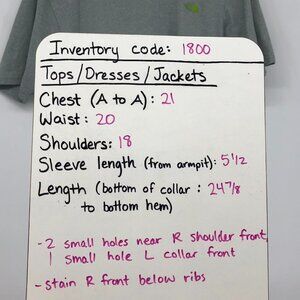 Inventory code: 1800
Tops/Dresses/Jackets
Chest (A to A): 21
Waist: 20
Shoulders: 18
Sleeve length (from armpit): 5 1/2
Length (bottom of collar : 24 7/8
to bottom hem)
- 2 small holes near R shoulder front,
1 small hole L collar front
- stain R front below ribs